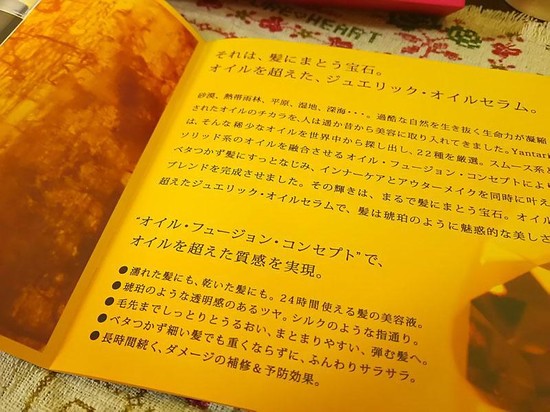 HEART
それは、髪にまとう宝石。
オイルを超えた、ジュエリック・オイルセラム。
砂漠、熱帯雨林、平原、湿地、深海・・・。過酷な自然を生き抜く生命力が凝縮
されたオイルのチカラを、人は遥か昔から美容に取り入れてきました。Yantari
は、そんな稀少なオイルを世界中から探し出し、22種を厳選。スムース系と
ソリッド系のオイルを融合させるオイル・フュージョン・コンセプトによ
ベタつかず髪にすっとなじみ、インナーケアとアウターメイクを同時に叶え
ブレンドを完成させました。その輝きは、まるで髪にまとう宝石。オイル
超えたジュエリック・オイルセラムで、髪は琥珀のように魅惑的な美しさ
“オイル・フュージョン・コンセプト”で、
オイルを超えた質感を実現。
●濡れた髪にも、乾いた髪にも。24時間使える髪の美容液。
●琥珀のような透明感のあるツヤ。シルクのような指通り。
●毛先までしっとりとうるおい、まとまりやすい、弾む髪へ。
●ベタつかず細い髪でも重くならずに、ふんわりサラサラ。
●長時間続く、ダメージの補修&予防効果。